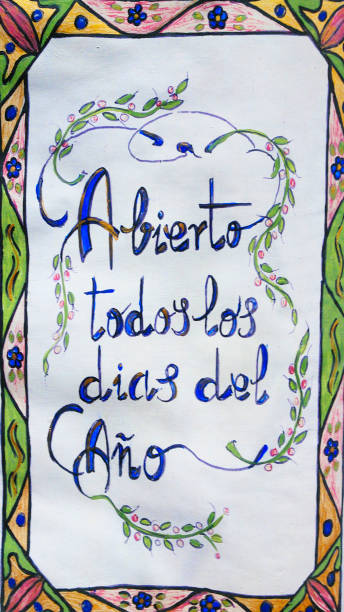 Abierto
todos los
dias del
Año